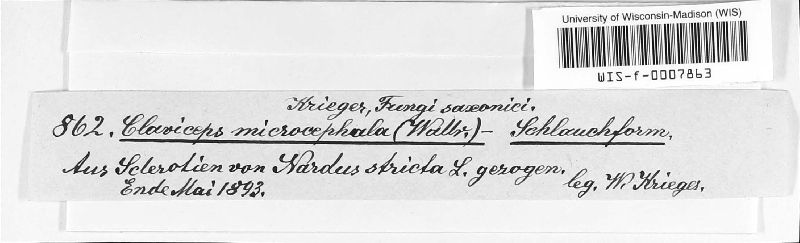 University of Wisconsin-Madison (WIS)
WIS-f-0007863
Krieger, Fungi saxonici.
862. Claviceps microcephala (Wallr.) – Schlauchform.
Aus Sclerotien von Nardus stricta L. gezogen.
Ende Mai 1893. leg. W. Krieger.